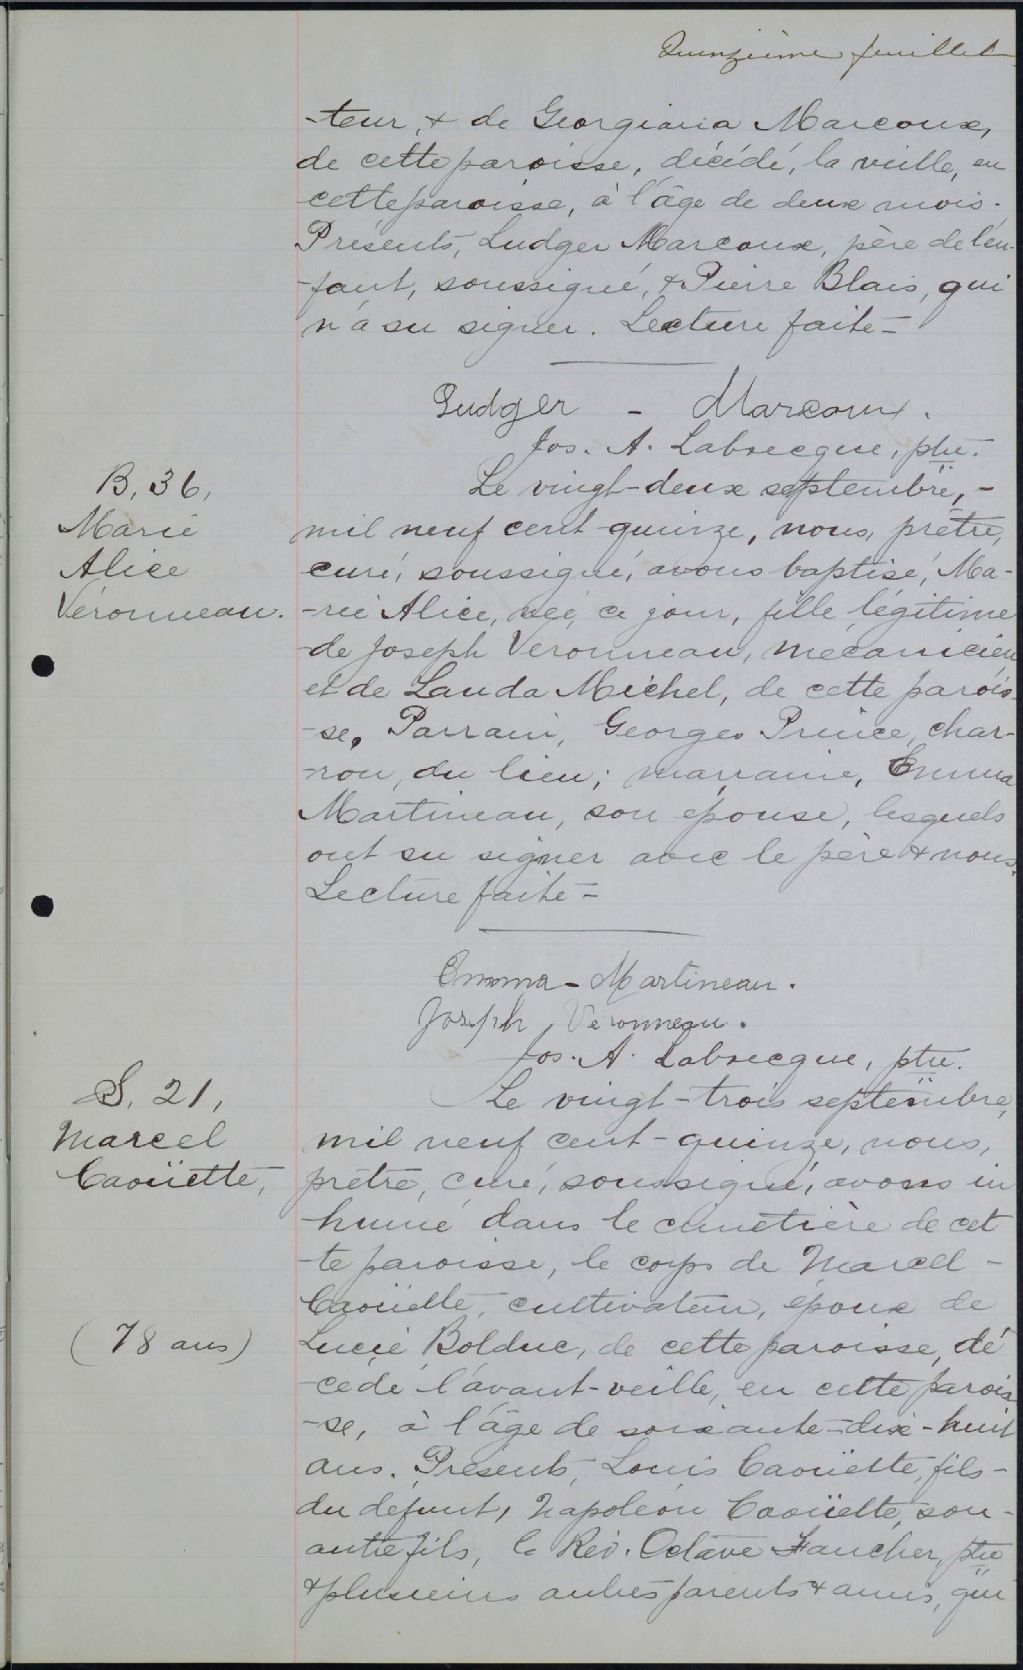 Quinzième feuillet
-teur, & de Georgiana Marcoux,
de cette paroisse, décédé, la veille, en
cette paroisse, à l'âge de deux mois.
Présents, Ludger Marcoux, père de l'en-
-fant, soussigné, & Pierre Blais, qui
n'a su signer. Lecture faite -
Ludger - Marcoux.
Jos. A. Labrecque, ptre.
B. 36,
Marie
Alice
Véronneau.
Le vingt-deux septembre, -
mil neuf cent-quinze, nous, prêtre,
curé, soussigné, avons baptisé, Ma-
-rie Alice, née, ce jour, fille légitime
de Joseph Veronneau, mécanicien
et de Landa Michel, de cette parois-
-se. Parrain, Georges Prince, char-
-ron, du lieu; marraine, Emma
Martineau, son épouse, lesquels
ont su signer avec le père & nous.
Lecture faite -
Emma - Martineau.
Joseph Veronneau.
Jos. A. Labrecque, ptre.
S. 21,
Marcel
Caoüette,
(78 ans)
Le vingt-trois septembre,
mil neuf cent-quinze, nous,
prêtre, curé, soussigné, avons in
-humé dans le cimetière de cet
-te paroisse, le corps de Marcel -
Caoüette, cultivateur, époux de
Lucie Bolduc, de cette paroisse, dé
-cédé l'avant-veille, en cette parois
-se, à l'âge de soixante-dix-huit
ans. Présents, Louis Caoüette, fils -
du défunt, Napoléon Caoüette, son -
autre fils, le Rév. Octave Faucher, ptre
& plusieurs autres parents & amis, qui